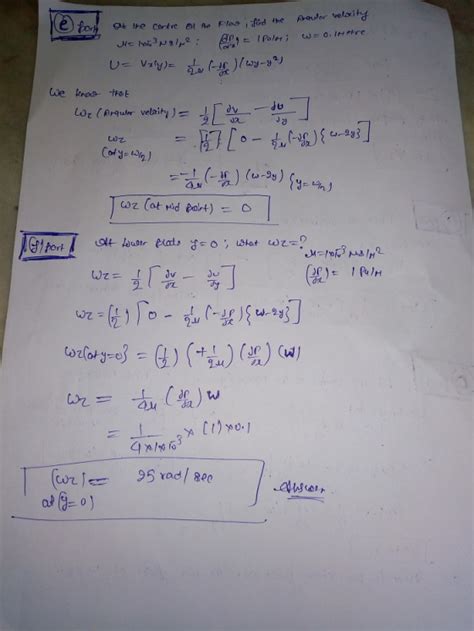 (e) part At the centre of the flow, find the Angular velocity
μ = 1×10⁻³ N·s/m² : (∂P/∂x) = 1 Pa/m ; W = 0.1 metre
U = Vx(y) = 1/2μ (-∂P/∂x) (wy-y²)
We know that
Wz (Angular velocity) = 1/2 [∂v/∂x - ∂u/∂y]
Wz (at y = w/2) = [1/2] [0 - 1/2μ (-∂P/∂x) {w-2y}]
= -1/4μ (-∂P/∂x) (w-2y) {y=w/2}
Wz (at mid point) = 0
(f) part At Lower plate y=0 ; what Wz=?
μ = 1×10⁻³ N·s/m²
(∂P/∂x) = 1 Pa/m
Wz = 1/2 [∂v/∂x - ∂u/∂y]
Wz = (1/2) [0 - 1/2μ (-∂P/∂x) {w-2y}]
Wz {at y=0} = (1/2) (+1/2μ) (∂P/∂x) (w)
Wz = 1/4μ (∂P/∂x) w
= 1/4×1×10⁻³ × (1) × 0.1
(Wz) at (y=0) = 25 rad/sec Answer